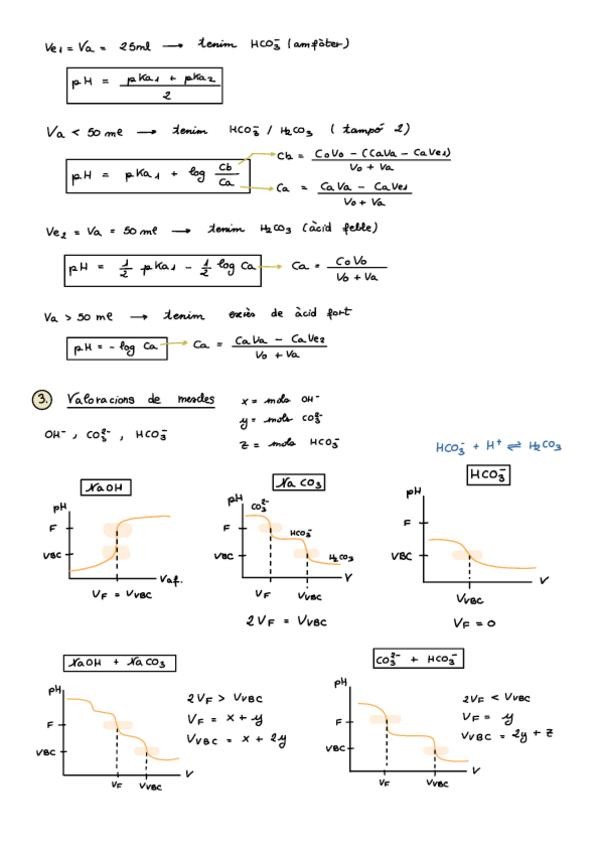 Ve₁ = Va = 25ml → tenim HCO₃⁻ (amfòter)
pH = (pKa₁ + pKa₂) / 2
Va < 50 ml → tenim HCO₃⁻ / H₂CO₃ (tampó 2)
pH = pKa₁ + log Cb/Ca
Cb = (CoVo − (CaVa − CaVe₁)) / (Vo + Va)
Ca = (CaVa − CaVe₁) / (Vo + Va)
Ve₂ = Va = 50 ml → tenim H₂CO₃ (àcid feble)
pH = 1/2 pKa₁ − 1/2 log Ca → Ca = CoVo / (Vo + Va)
Va > 50 ml → tenim excés de àcid fort
pH = − log Ca → Ca = (CaVa − CaVe₂) / (Vo + Va)
3. Valoracions de mescles
x = mols OH⁻
y = mols CO₃²⁻
z = mols HCO₃⁻
OH⁻, CO₃²⁻, HCO₃⁻
HCO₃⁻ + H⁺ ⇌ H₂CO₃
NaOH
pH
F
VBC
Vaf.
VF = VVBC
NaCO₃
pH
CO₃²⁻
F
HCO₃⁻
VBC
H₂CO₃
V
VF VVBC
2VF = VVBC
HCO₃⁻
pH
F
VBC
V
VVBC
VF = 0
NaOH + NaCO₃
pH
F
VBC
V
VF VVBC
2VF > VVBC
VF = x + y
VVBC = x + 2y
CO₃²⁻ + HCO₃⁻
pH
F
VBC
V
VF VVBC
2VF < VVBC
VF = y
VVBC = 2y + z